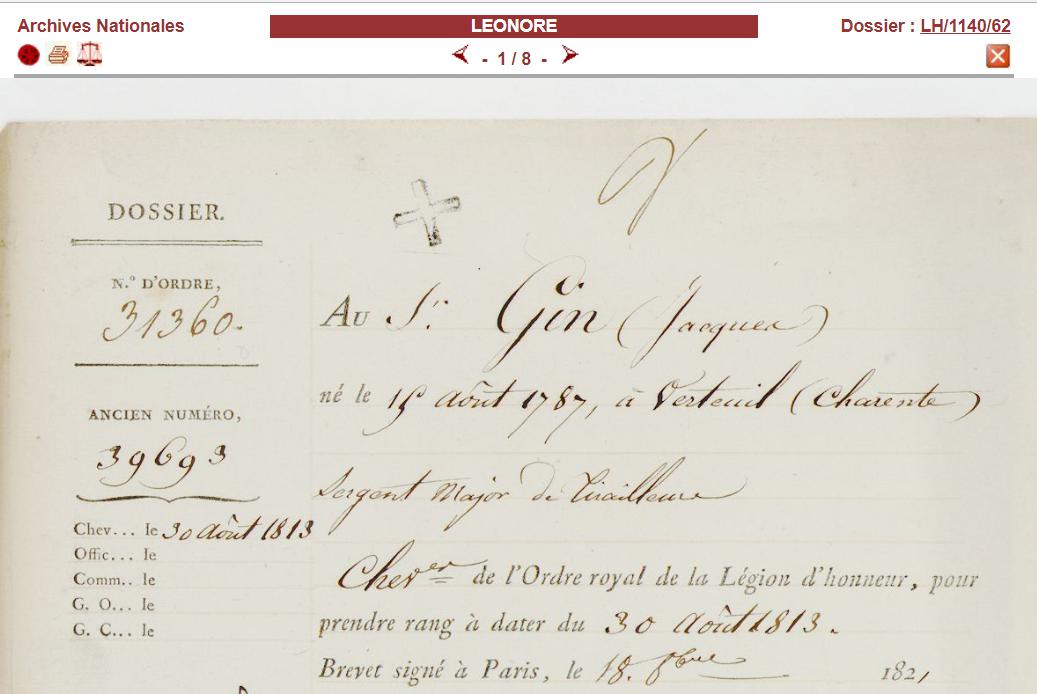 Archives Nationales
LEONORE
Dossier : LH/1140/62
- 1 / 8 -
DOSSIER.
N.º D'ORDRE,
31360.
ANCIEN NUMÉRO,
39693
Chev... le 30 Août 1813
Offic... le
Comm.. le
G. O... le
G. C... le
AU S.r Gin (Jacques)
né le 15 août 1787, à Verteuil (Charente)
Sergent Major de Tirailleurs
Chever de l'Ordre royal de la Légion d'honneur, pour
prendre rang à dater du 30 Août 1813.
Brevet signé à Paris, le 18. 8bre 1821